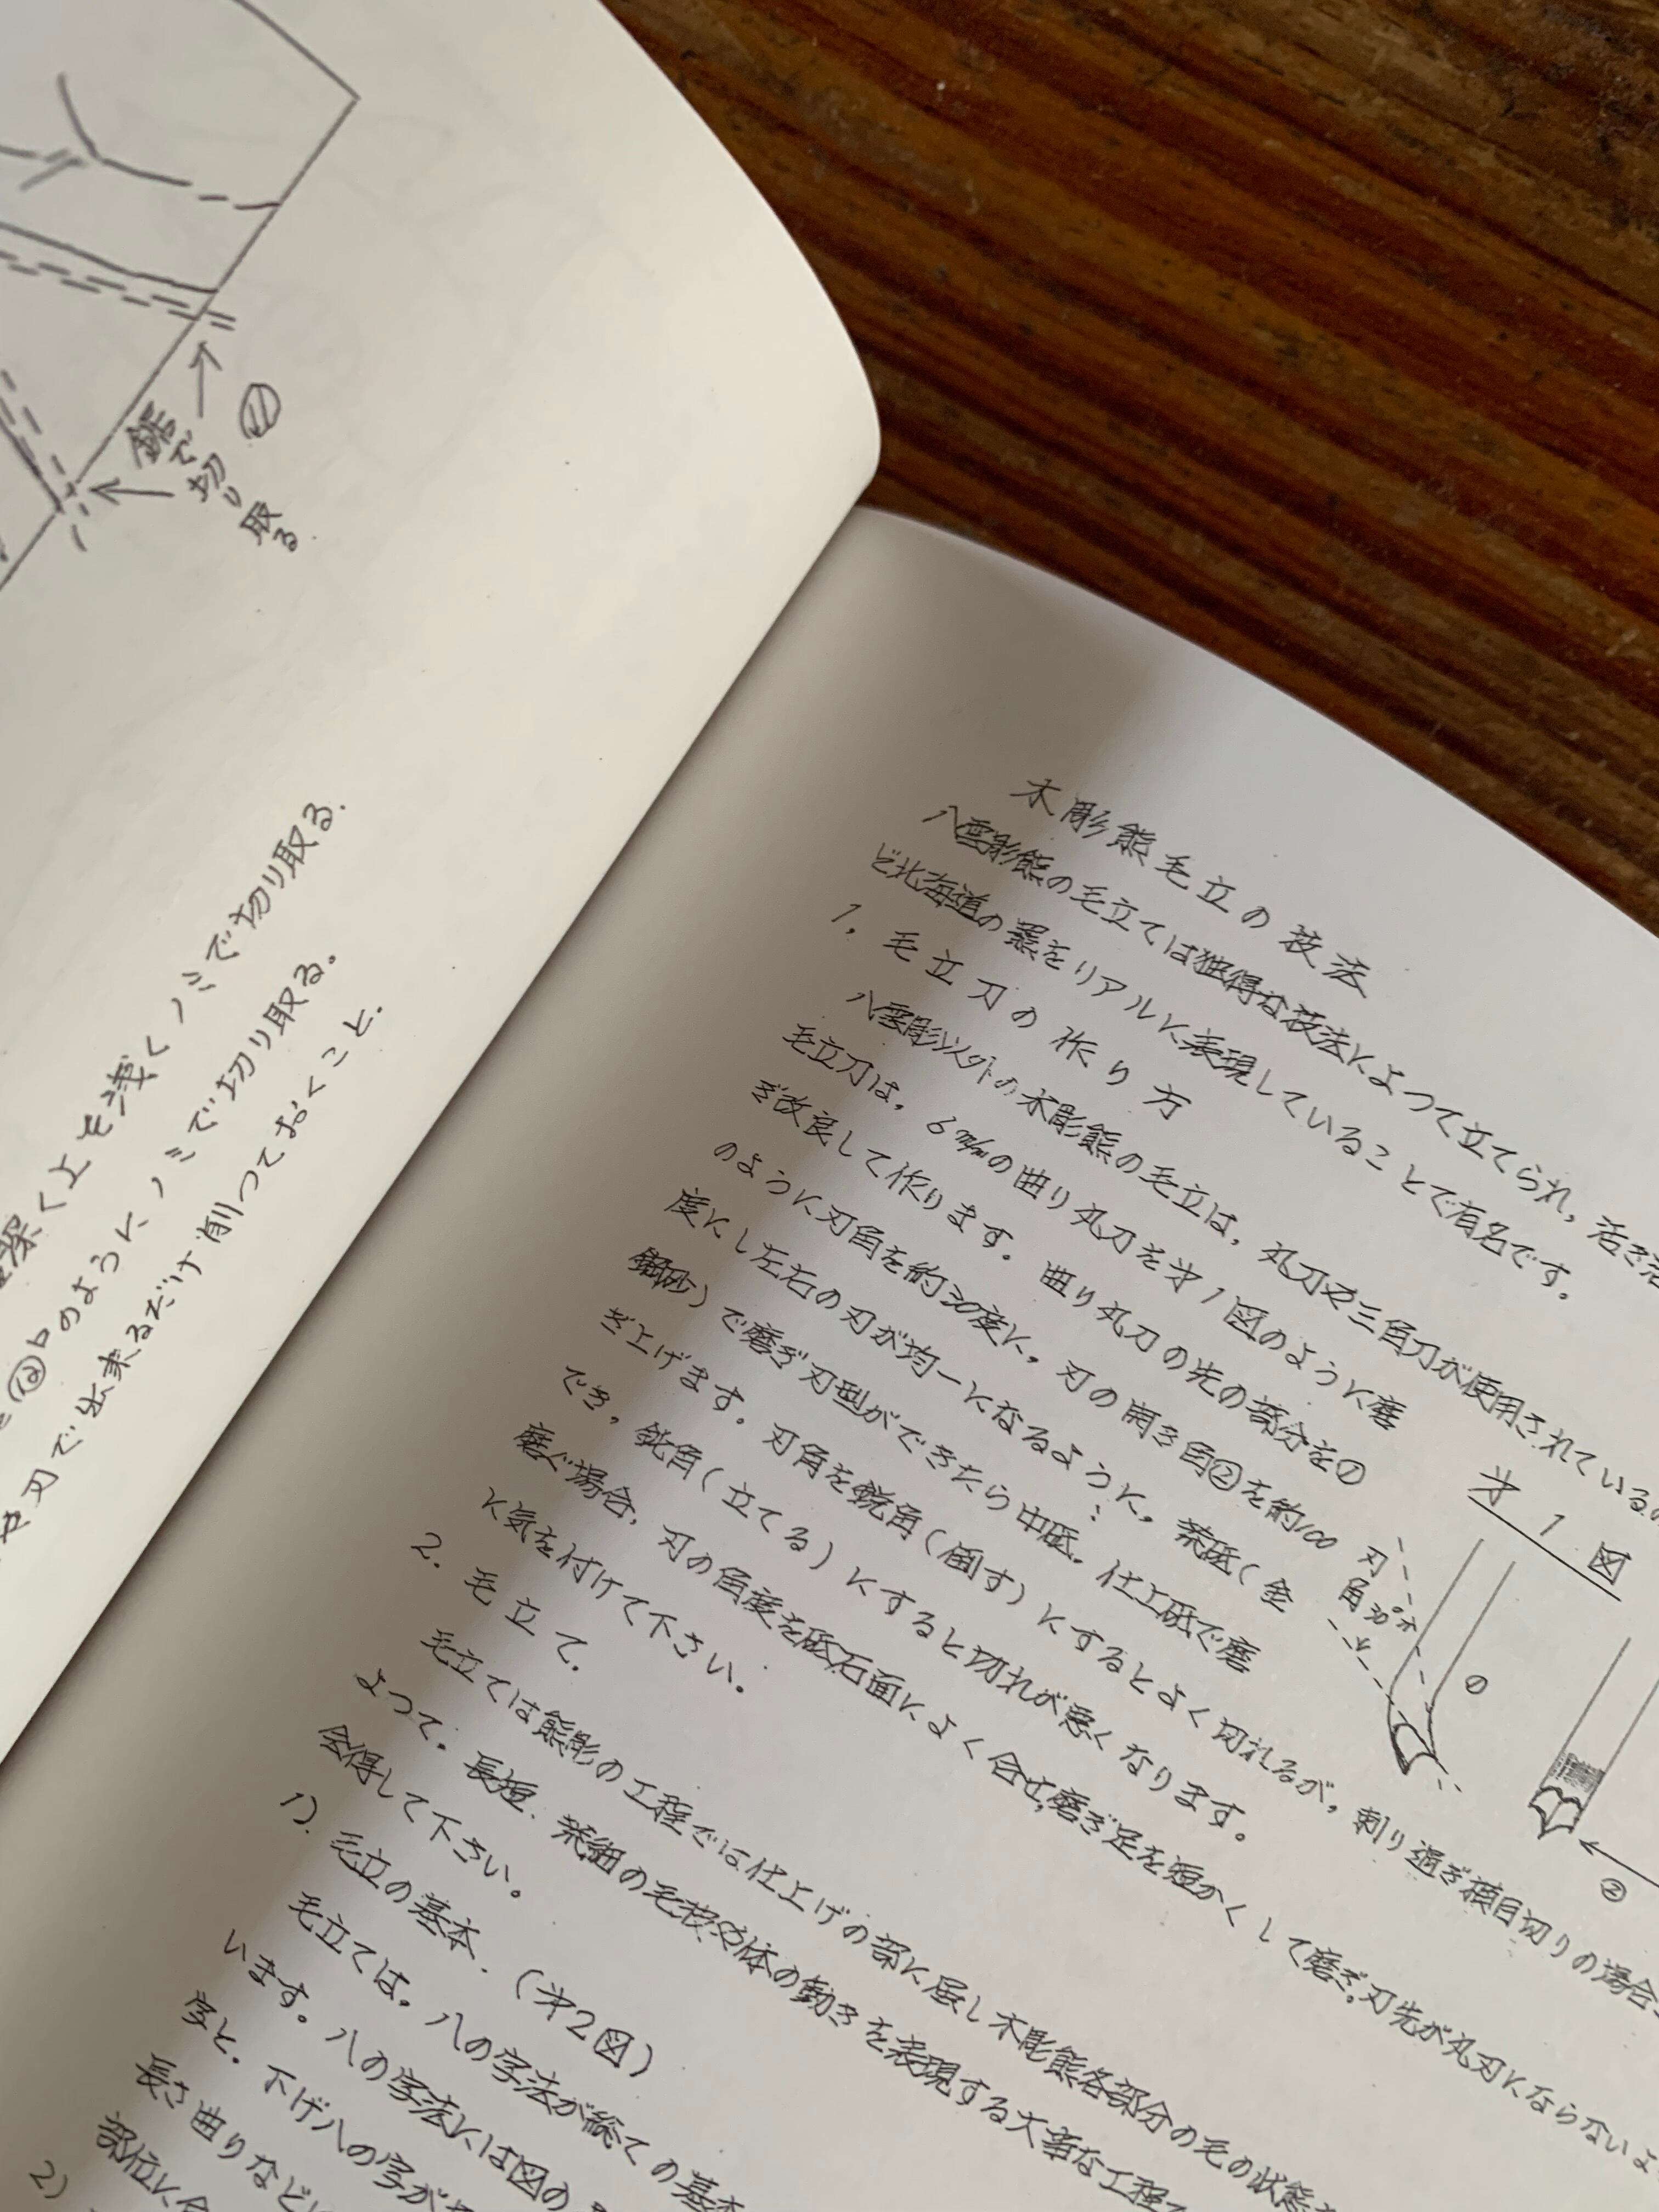 鋸で切り取る
⑪
深く上を浅くノミで切り取る.
⑫bのようにノミで切り取る。
や刃で出来るだけ削っておくこと.
木彫熊毛立の技法
八雲彫熊の毛立ては独得な技法によって立てられ,活き活
ど北海道の羆をリアルに表現していることで有名です。
1. 毛立刀の作り方
八雲彫以外の木彫熊の毛立は,丸刀や三角刀が使用されているの
毛立刀は,6㎜の曲り丸刀を才1図のように磨
ぎ改良して作ります。曲り丸刀の先の部分を①
のように刃角を約30度に,刃の開き角②を約100
度にし左右の刃が均一になるように,荒砥(金
鋼砂)で磨ぎ刃型ができたら中砥.仕上砥で磨
ぎ上げます.刃角を鋭角(倒す)にするとよく切れるが,刺り過ぎ横目切りの場合
でき,鈍角(立てる)にすると切れが悪くなります。
磨ぐ場合,刃の角度を砥石面によく合せ,磨ぎ足を短かくして磨ぎ,刃先が丸刃にならないよ
に気を付けて下さい。
才1図
刃角30°
①
②
2. 毛立て.
毛立ては熊彫の工程では仕上げの部に属し木彫熊各部分の毛の状態
よって.長短.荒細の毛技や体の動きを表現する大事な工程
会得して下さい。
1). 毛立の基本.(才2図)
毛立ては.八の字法が総ての基本
います。八の字法には図の
字と.下げ八の字が
長さ曲りなど
部位に
2)